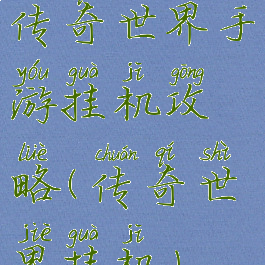 传奇世界手
yóu guà jī gōng
游挂机攻
lüè chuán qí shì
略(传奇世
jiè guà jī
界挂机)